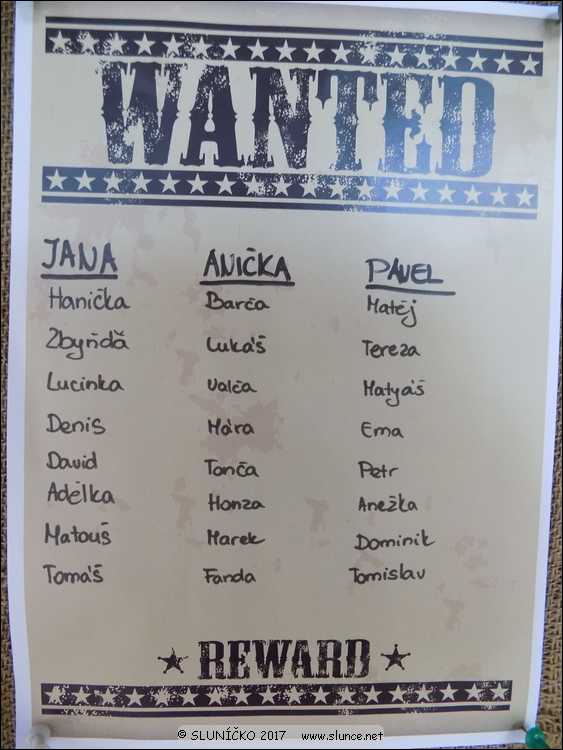 WANTED
JANA ANIČKA PAVEL
Hanička Barča Matěj
Zbyňďa Lukáš Tereza
Lucinka Valča Matyáš
Denis Mára Ema
David Tonča Petr
Adélka Honza Anežka
Matouš Marek Dominik
Tomáš Fanda Tomislav
REWARD
© SLUNÍČKO 2017 www.slunce.net